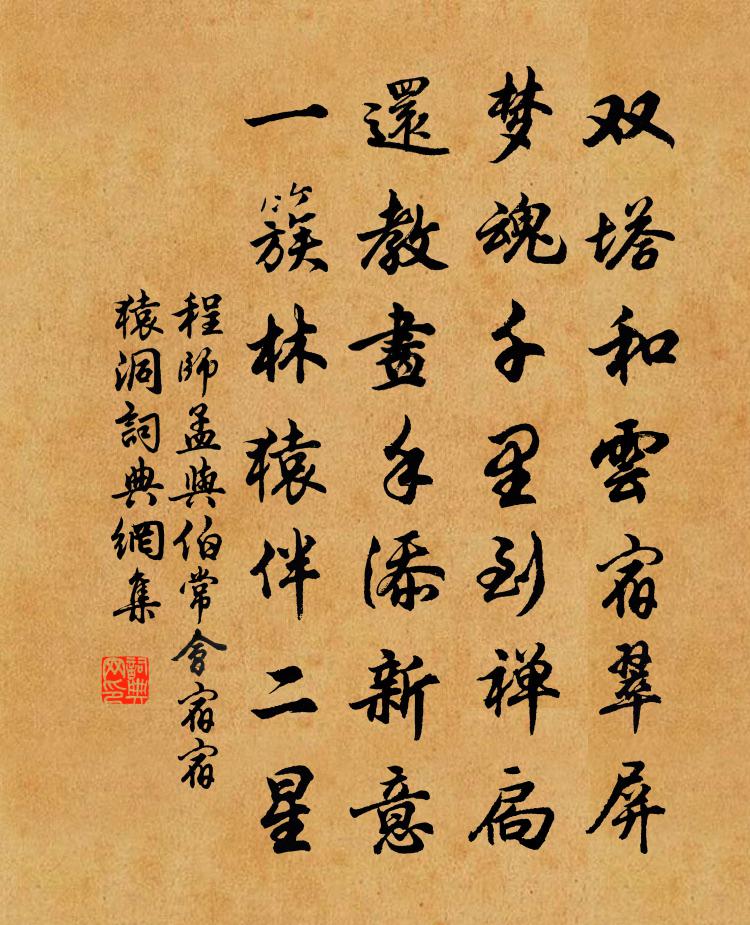 双塔和雲宿翠屏
梦魂千里到禅扃
還教畫手添新意
一簇林猿伴二星
程師孟與伯常會宿宿
猿洞詞典網集
詞典网印